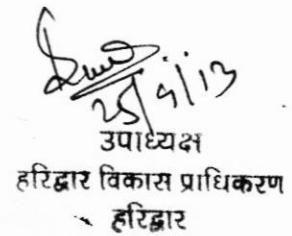 25/9/13
उपाध्यक्ष
हरिद्वार विकास प्राधिकरण
हरिद्वार